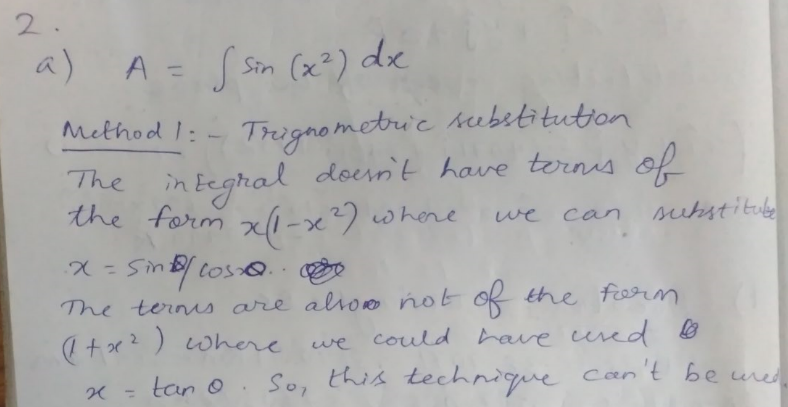 2.
a) A = ∫ sin (x²) dx
Method 1: - Trignometric substitution
The integral doesn't have terms of
the form x(1-x²) where we can substitute
x = sinθ/cosθ.
The terms are also not of the form
(1+x²) where we could have used
x = tan θ. So, this technique can't be used.